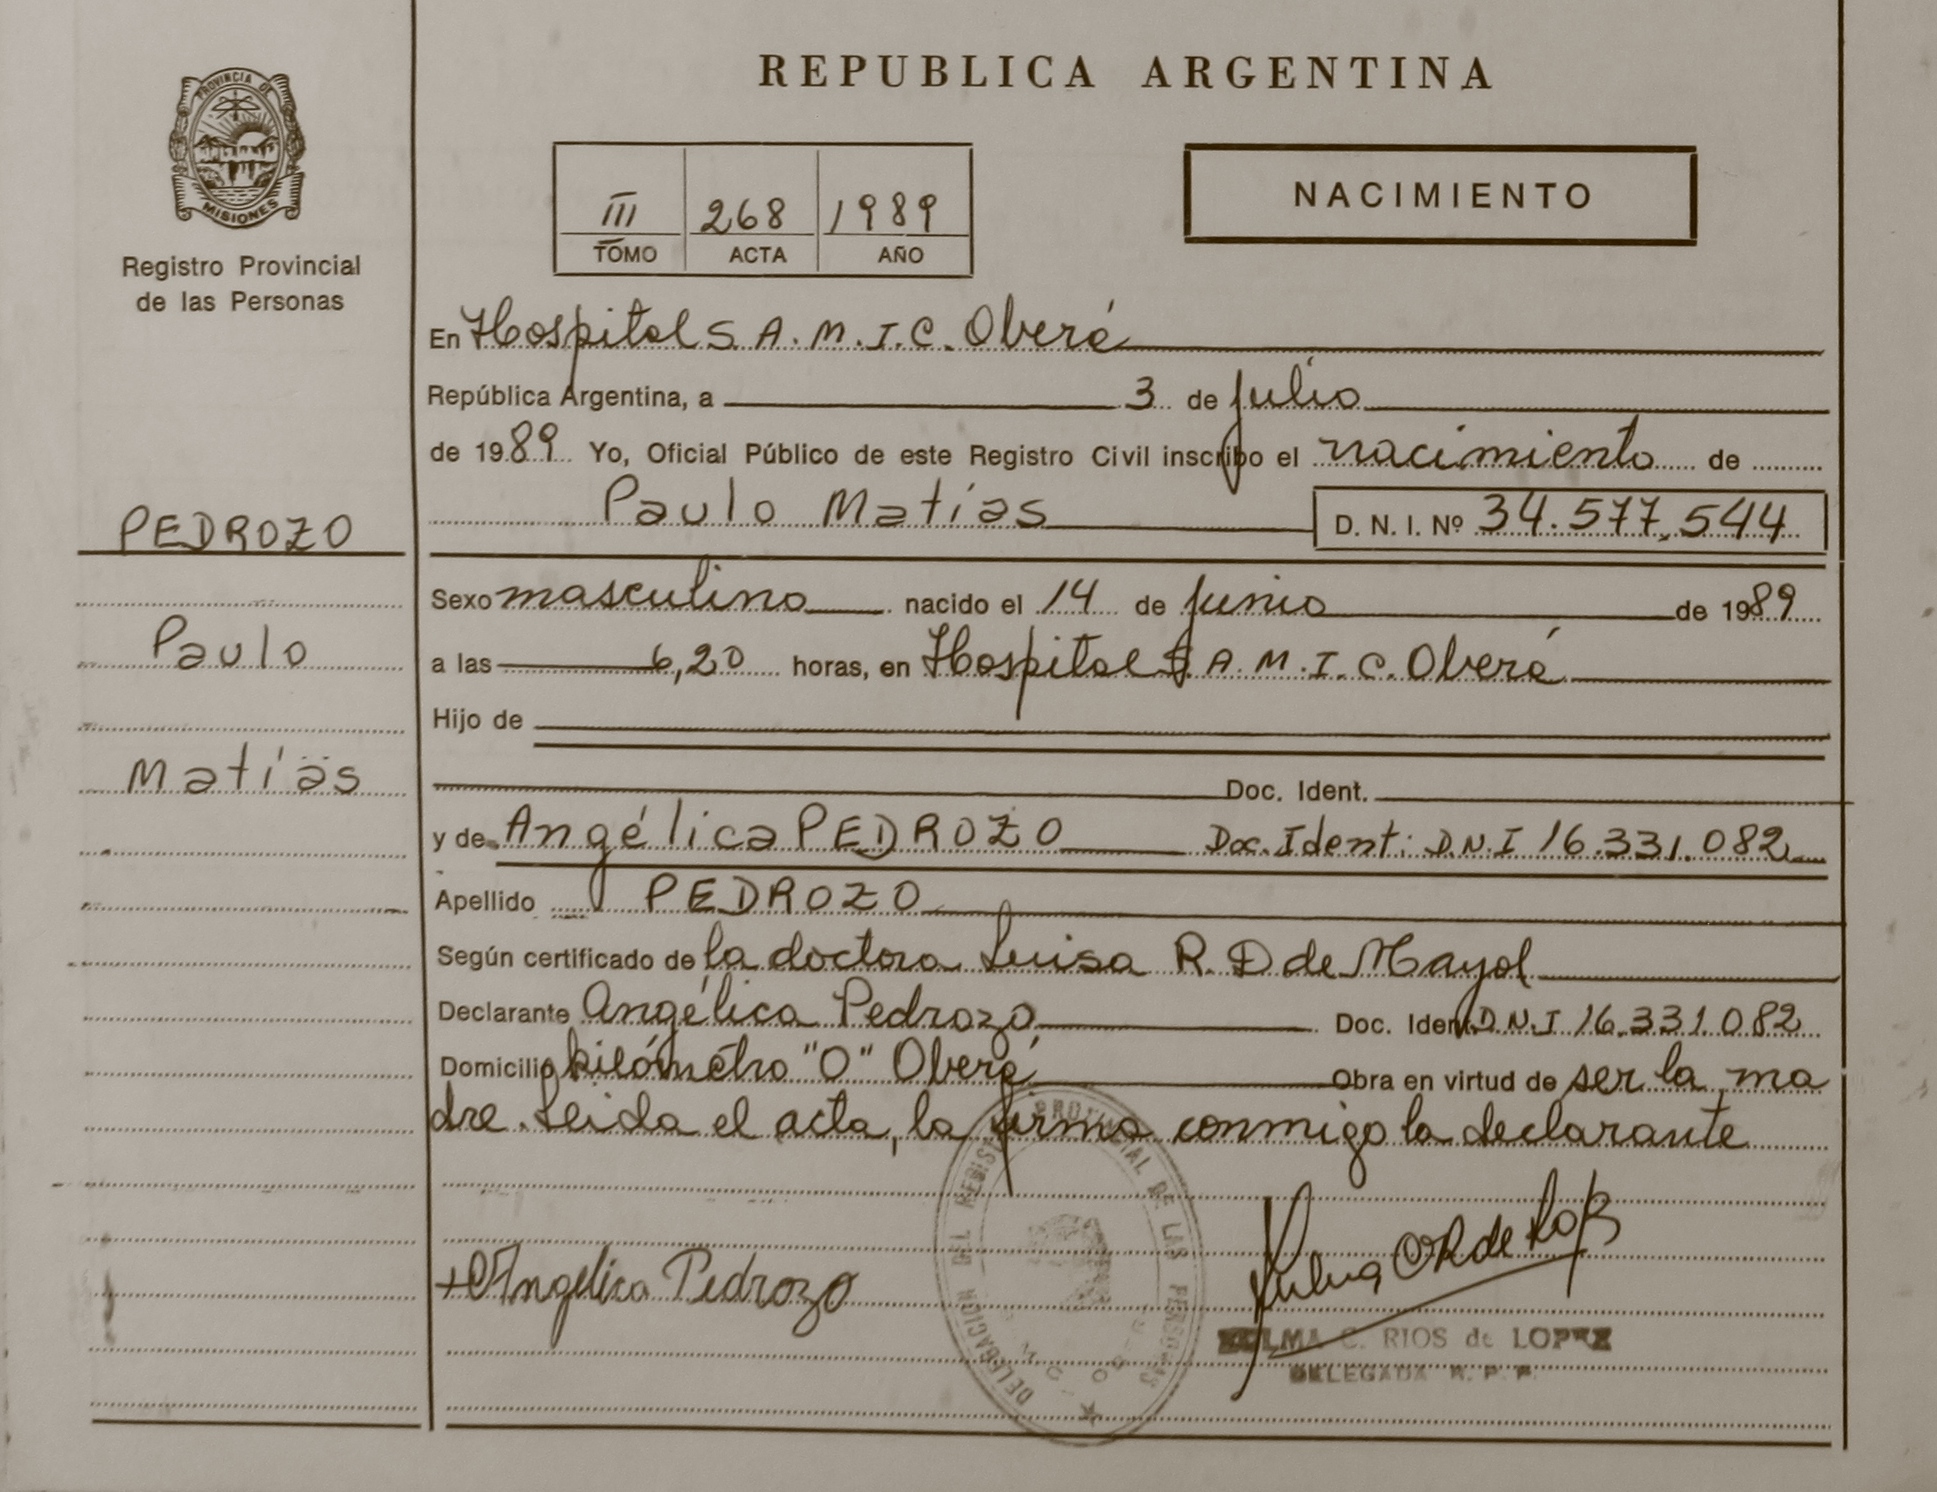 PROVINCIA DE
MISIONES
Registro Provincial
de las Personas
PEDROZO
Paulo
Matías
REPUBLICA ARGENTINA
III 268 1989
TOMO ACTA AÑO
NACIMIENTO
En Hospital S.A.M.I.C. Oberá
República Argentina, a 3 de julio
de 1989 Yo, Oficial Público de este Registro Civil inscribo el nacimiento de
Paulo Matías D. N. I. Nº 34.577.544
Sexo masculino nacido el 14 de junio de 1989
a las 6,20 horas, en Hospital S.A.M.I.C. Oberá
Hijo de
Doc. Ident.
y de Angélica PEDROZO Doc. Ident: D.N.I 16.331.082
Apellido PEDROZO
Según certificado de la doctora Luisa R. D de Mayol
Declarante Angélica Pedrozo Doc. Ident. D.N.I 16.331.082
Domicilio kilómetro "0" Oberá Obra en virtud de ser la ma
dre. Leida el acta, la firma conmigo la declarante
DELEGACION DEL REGISTRO PROVINCIAL DE LAS PERSONAS
+ Angelica Pedrozo
ZULMA C. RIOS de LOPEZ
DELEGADA R. P. P.